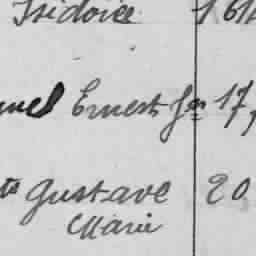 Isidoire 161
uel Ernest fₑₙ 17,
te Gustave 20
Marie